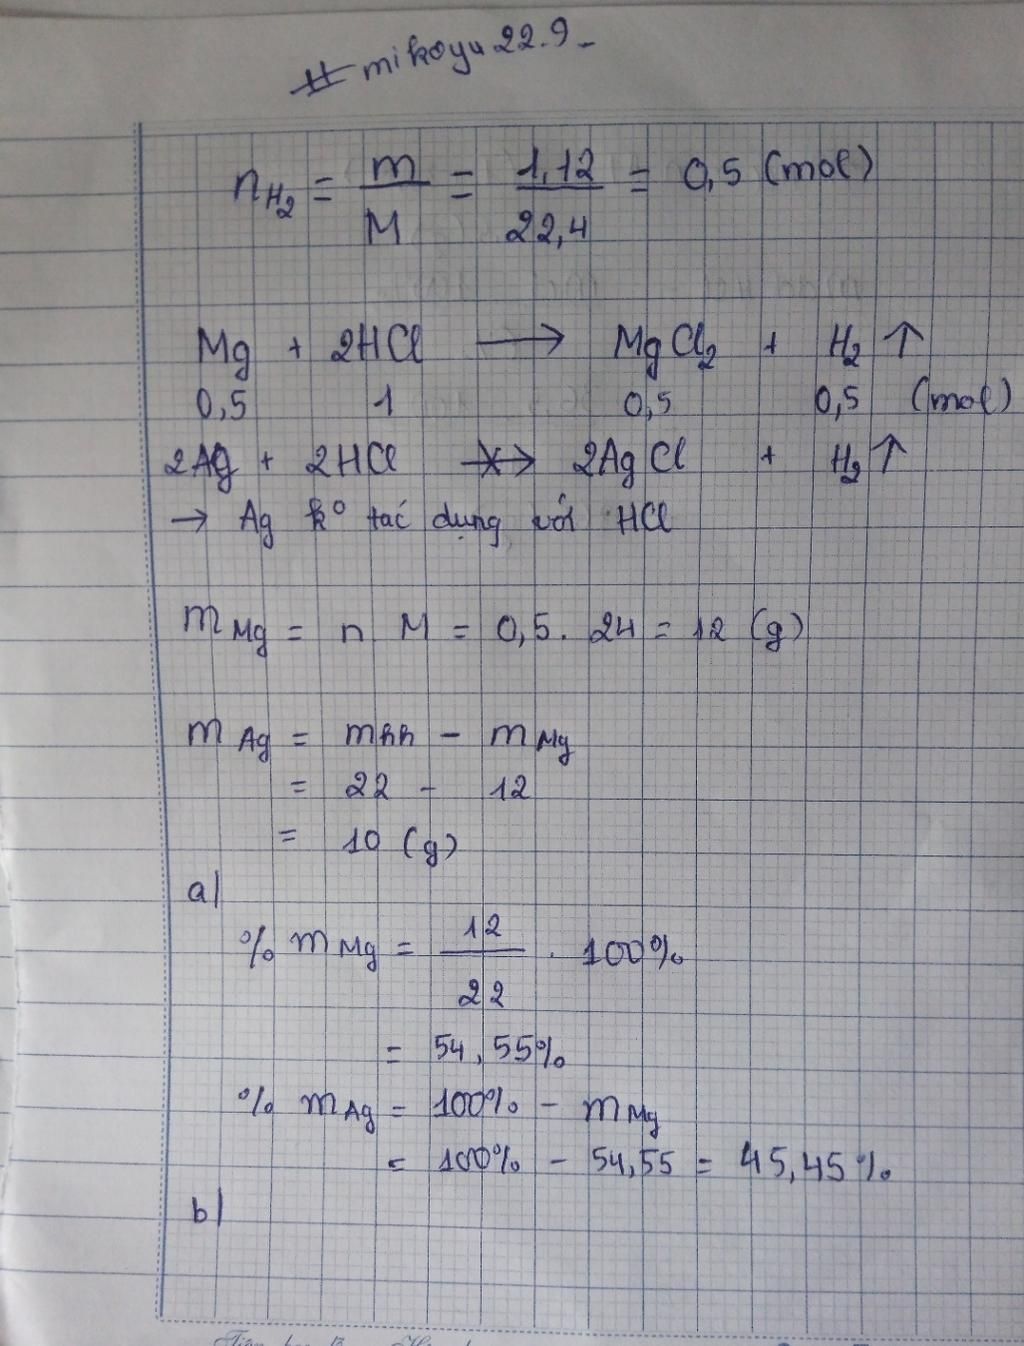 # mikoyu22.9_
n_H₂ = m/M = 1,12/22,4 = 0,5 (mol)
Mg + 2HCl → MgCl₂ + H₂ ↑
0,5 1 0,5 0,5 (mol)
2Ag + 2HCl -×-> 2AgCl + H₂ ↑
→ Ag k° tác dụng với HCl
m Mg = n M = 0,5 . 24 = 12 (g)
m Ag = mhh - m Mg
= 22 - 12
= 10 (g)
a)
% m Mg = 12/22 . 100%
= 54,55%
% m Ag = 100% - m Mg
= 100% - 54,55 = 45,45%
b)